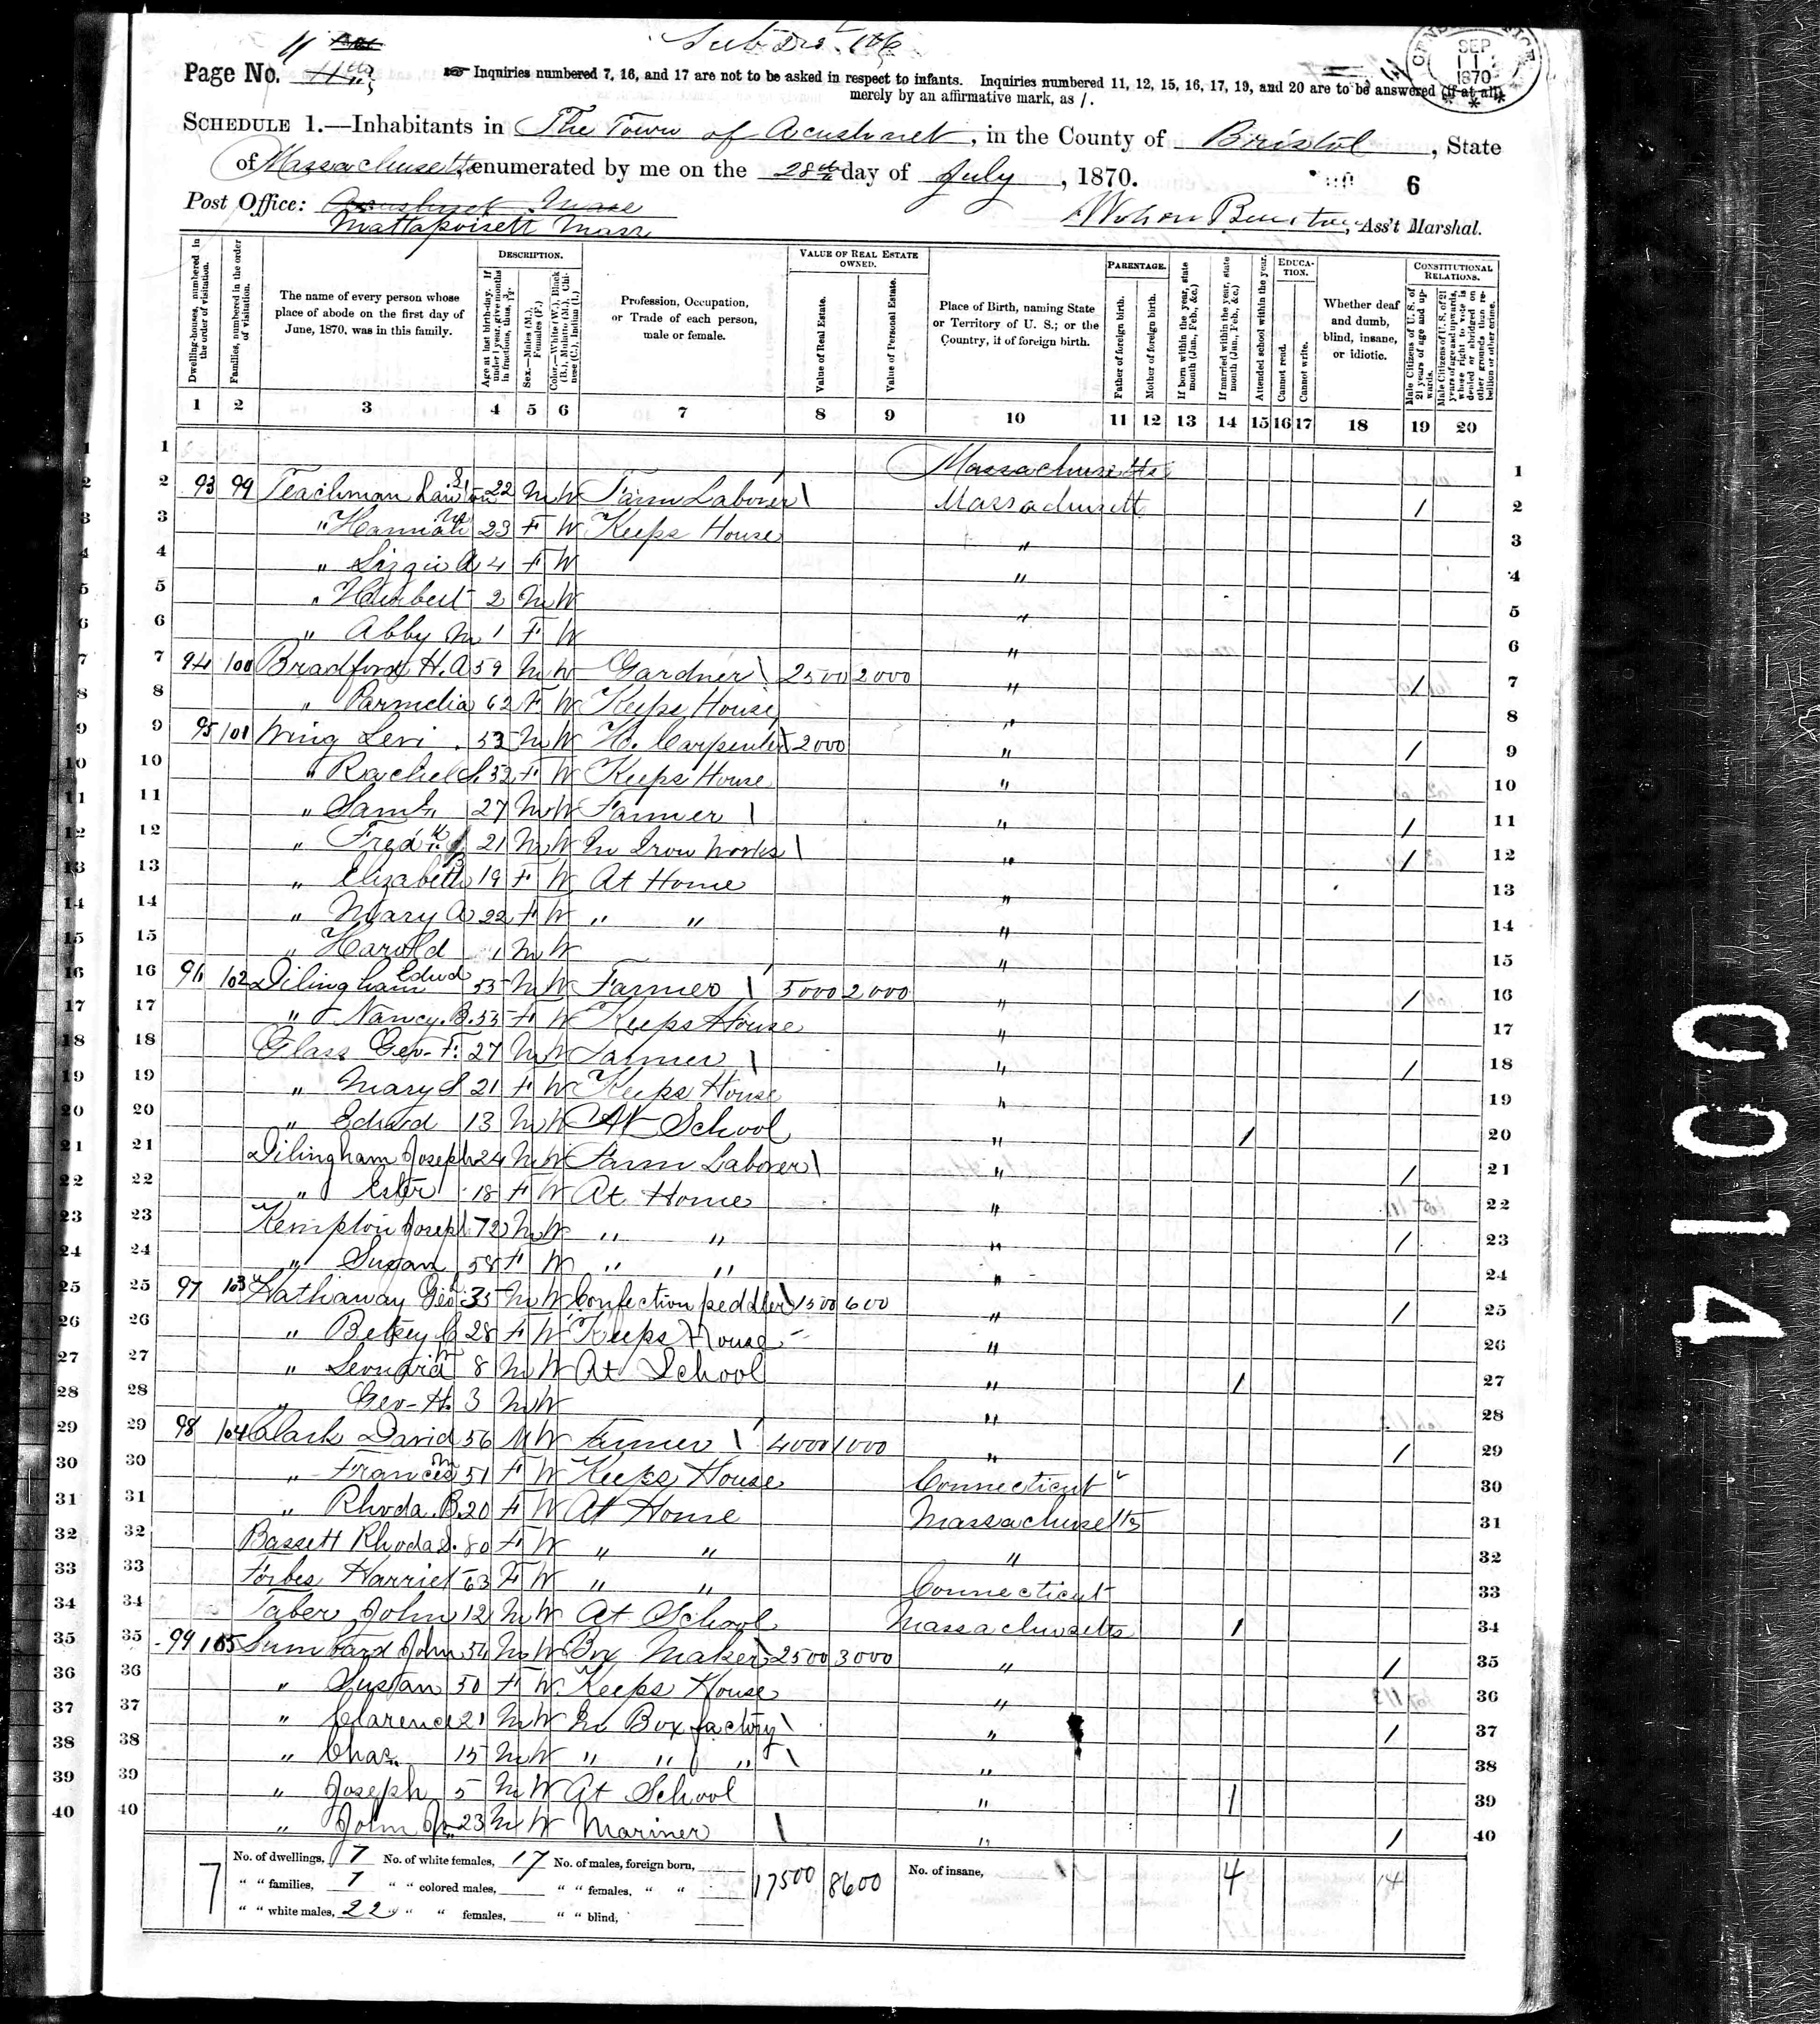 Sub Dis 106
Page No. 11
Inquiries numbered 7, 16, and 17 are not to be asked in respect to infants. Inquiries numbered 11, 12, 15, 16, 17, 19, and 20 are to be answered (if at all)
merely by an affirmative mark, as /.
SEP
1870
SCHEDULE 1.—Inhabitants in The Town of Acushnet, in the County of Bristol, State
of Massachusetts enumerated by me on the 28th day of July, 1870.
6
Post Office: Acushnet Mass
Mattapoisett Mass
Ass't Marshal.
Dwelling-houses, numbered in the order of visitation.
Families, numbered in the order of visitation.
The name of every person whose place of abode on the first day of June, 1870, was in this family.
DESCRIPTION.
Age at last birth-day. If under 1 year, give months in fractions, thus, 3/12.
Sex.—Males (M.), Females (F.)
Color.—White (W.), Black (B.), Mulatto (M.), Chinese (C.), Indian (I.)
Profession, Occupation, or Trade of each person, male or female.
VALUE OF REAL ESTATE OWNED.
Value of Real Estate.
Value of Personal Estate.
Place of Birth, naming State or Territory of U. S.; or the Country, if of foreign birth.
PARENTAGE.
Father of foreign birth.
Mother of foreign birth.
If born within the year, state month (Jan., Feb., &c.)
If married within the year, state month (Jan., Feb., &c.)
Attended school within the year.
EDUCATION.
Cannot read.
Cannot write.
Whether deaf and dumb, blind, insane, or idiotic.
CONSTITUTIONAL RELATIONS.
Male Citizens of U. S. of 21 years of age and upwards.
Male Citizens of U. S. of 21 years of age and upwards, whose right to vote is denied or abridged on other grounds than rebellion or other crime.
1 2 3 4 5 6 7 8 9 10 11 12 13 14 15 16 17 18 19 20
1 Massachusetts 1
2 93 99 Teachman 22 M W Farm Laborer Massachusett / 2
3 " Hannah 23 F W Keeps House " 3
4 " Lizzie A 4 F W " 4
5 " Herbert 2 M W " 5
6 " Abby M 1 F W " 6
7 94 100 Bradford H. A 59 M W Gardner 2500 2000 " / 7
8 " Parmelia 62 F W Keeps House " 8
9 95 101 Wing Levi 53 M W Ho. Carpenter 2000 " / 9
10 " Rachel S. 52 F W Keeps House " 10
11 " Saml. 27 M W Farmer " / 11
12 " Fredk 21 M W In Iron Works " / 12
13 " Elizabeth 19 F W At Home " 13
14 " Mary A 22 F W " " " 14
15 " Harold 1 M W " 15
16 96 102 Dilingham Edwd 55 M W Farmer 5000 2000 " / 16
17 " Nancy. B. 55 F W Keeps House " 17
18 Glass Geo- F. 27 M W Farmer " / 18
19 " Mary S 21 F W Keeps House " 19
20 " Edward 13 M W At School " / 20
21 Dilingham Joseph 24 M W Farm Laborer " / 21
22 " Ester 18 F W At Home " 22
23 Kempton Joseph 72 M W " " " / 23
24 " Susan 58 F W " " " 24
25 97 103 Hathaway Geo 35 M W Confection peddler 1500 600 " / 25
26 " Betsey C 28 F W Keeps House " 26
27 " 8 M W At School " / 27
28 " Geo- H. 3 M W " 28
29 98 104 Clark David 56 M W Farmer 4000 1000 " / 29
30 " Frances M 51 F W Keeps House Connecticut 30
31 " Rhoda. B. 20 F W At Home Massachusetts 31
32 Bassett Rhoda S. 80 F W " " " 32
33 Forbes Harriet 63 F W " " Connecticut 33
34 Taber John 12 M W At School Massachusetts / 34
35 99 105 Lumbard John 54 M W Box Maker 2500 3000 " / 35
36 " Sustan 50 F W Keeps House " 36
37 " Clarence 21 M W In Box factory " / 37
38 " Chas. 15 M W " " " " 38
39 " Joseph 5 M W At School " / 39
40 " John Jr 23 M W Mariner " / 40
7
No. of dwellings, 7 No. of white females, 17 No. of males, foreign born, 17500 8600 No. of insane, 4 14
" " families, 7 " " colored males, " " females, " "
" " white males, 22 " " females, " " blind,
0014